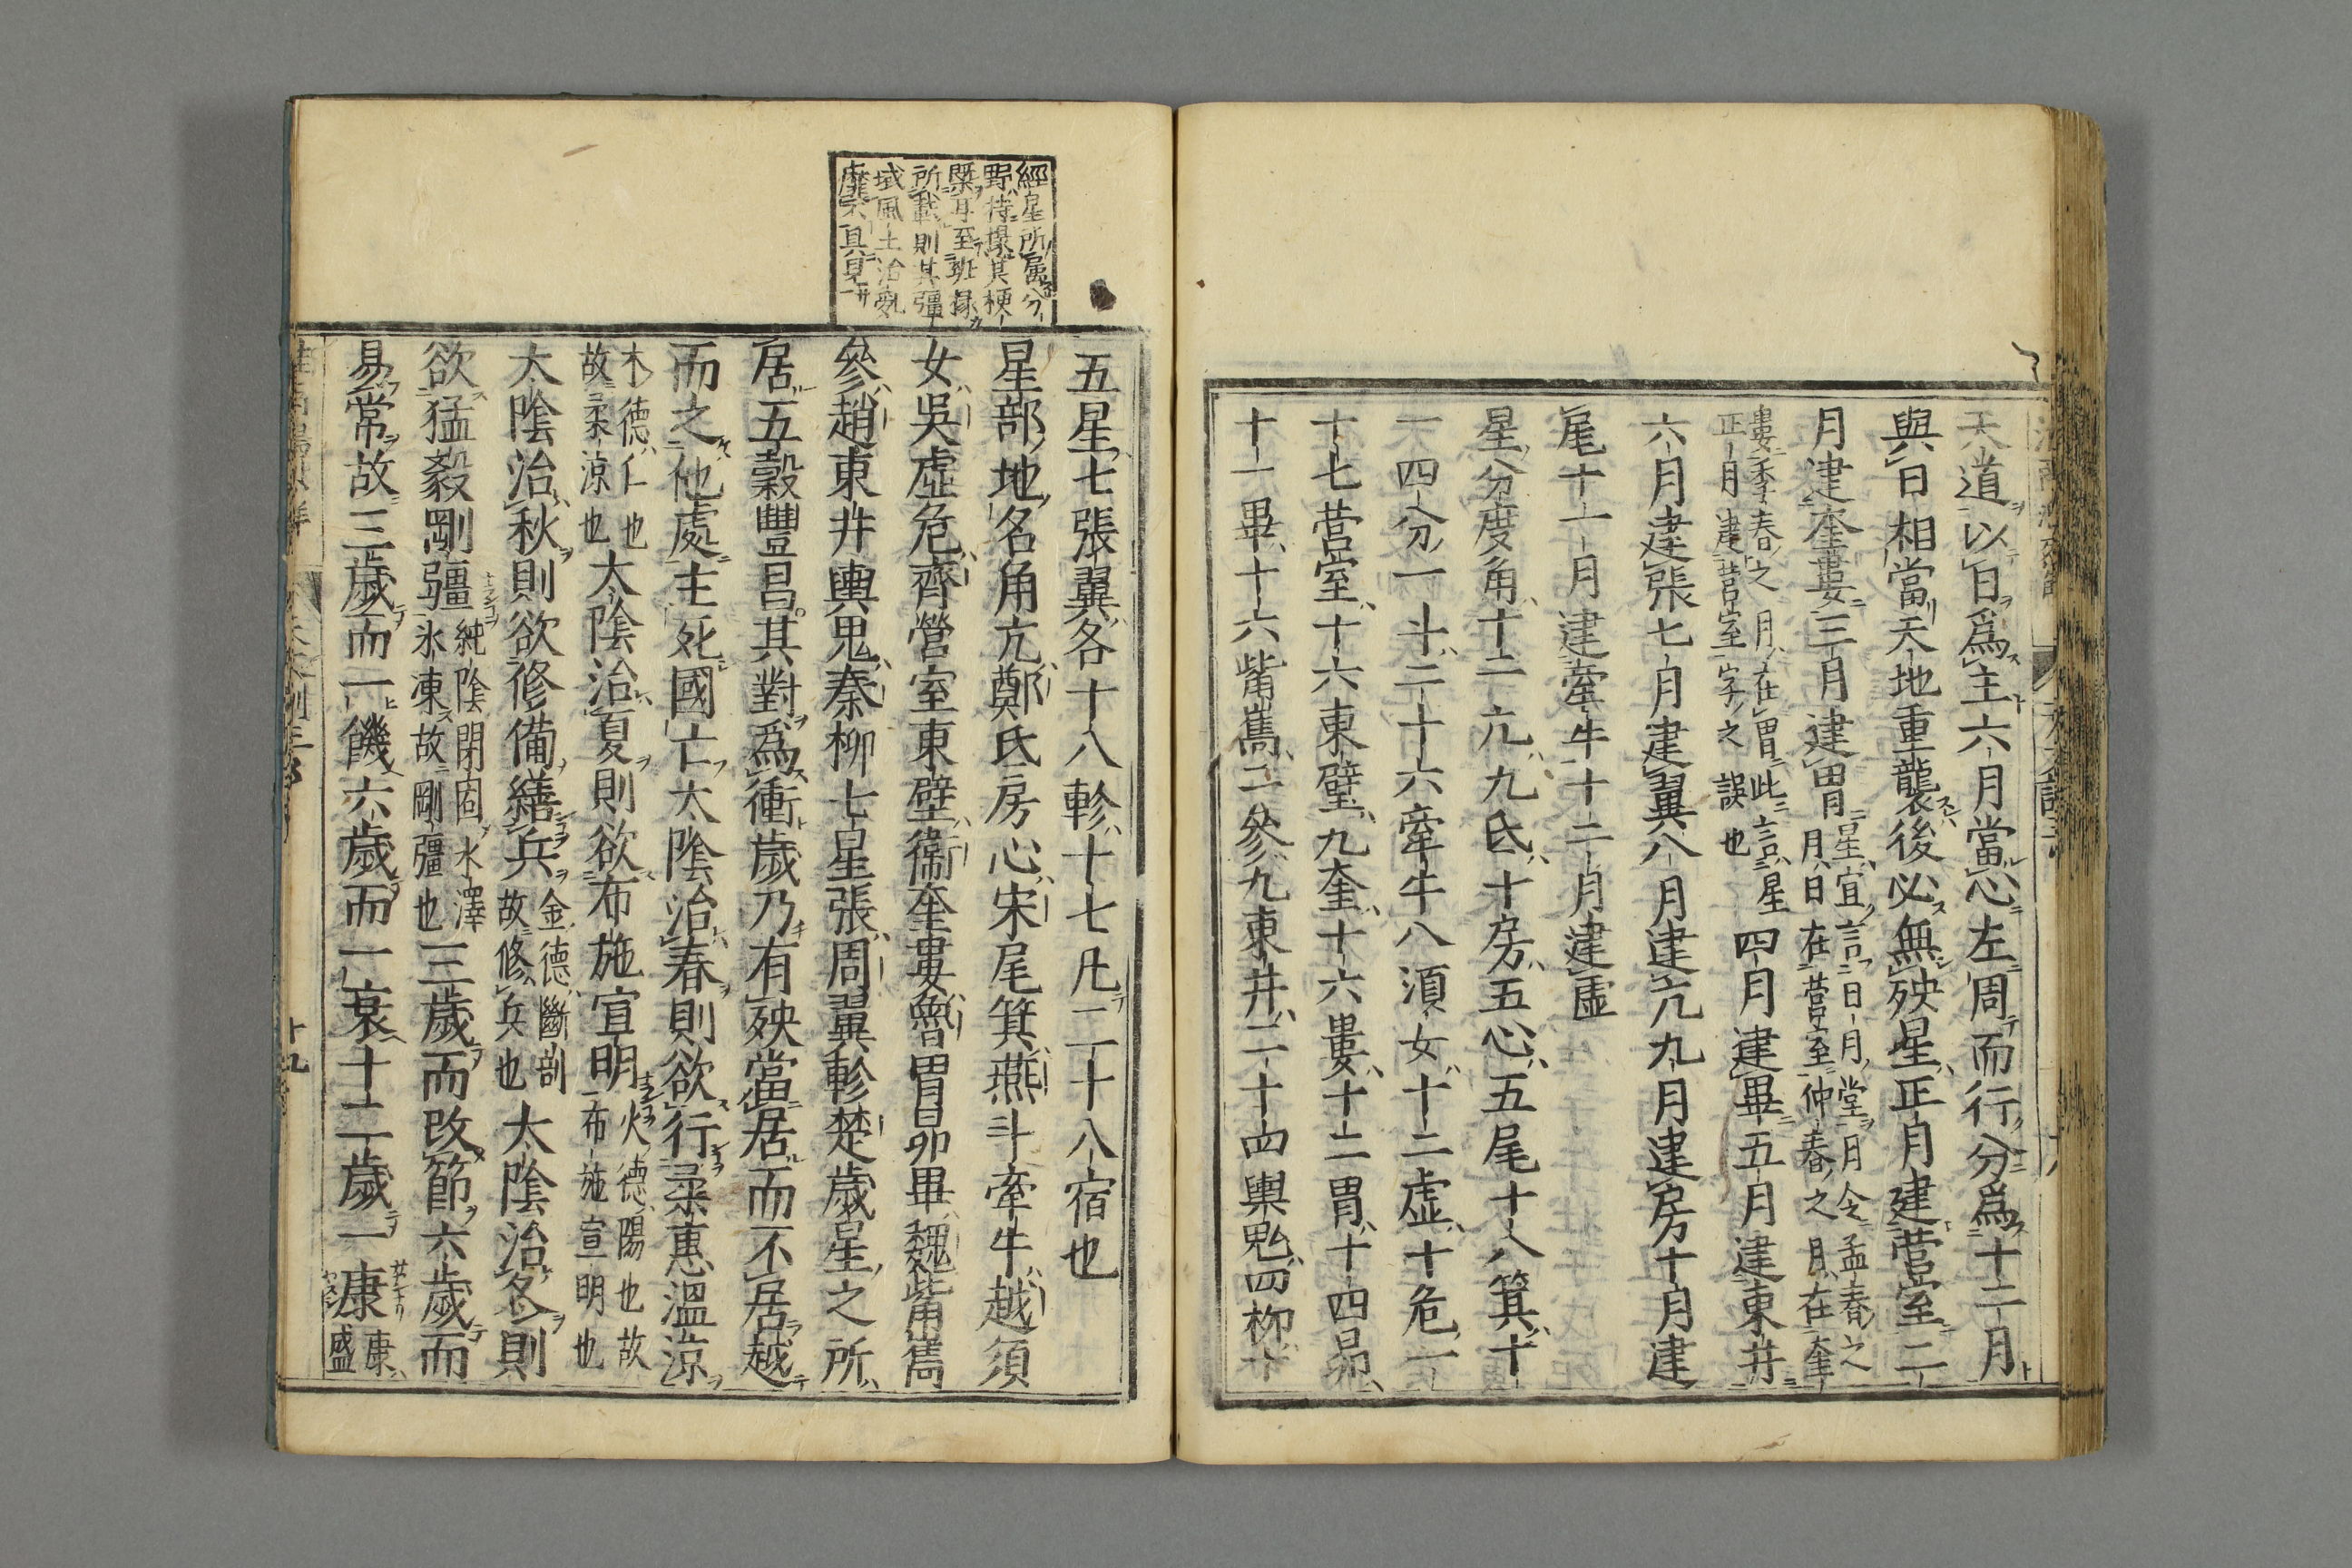 天道以日爲主六月當心左周而行分爲十二月
與日相當天地重襲後必無殃星正月建營室二
月建奎婁三月建胃星宜言日月堂月令孟春之
月日在營室仲春之月在奎
婁季春之月在胃此言星
正月建營室字之誤也
四月建畢五月建東井
六月建張七月建翼八月建亢九月建房十月建
尾十一月建牽牛十二月建虛
星分度角十二亢九氐十房五心五尾十八箕十
一四分一斗二十六牽牛八須女十二虛十危一
十七營室十六東壁九奎十六婁十二胃十四昴
十一畢十六觜嶲二參九東井二十四輿鬼四柳十
經星所属分
野特撮其梗
槩耳至班録
所載則其彊
域風土治亂
靡不具見
五星七張翼各十八軫十七凡二十八宿也
星部地名角亢鄭氐房心宋尾箕燕斗牽牛越須
女吳虛危齊營室東壁衞奎婁魯胃昴畢魏觜嶲
參趙東井輿鬼秦柳七星張周翼軫楚歲星之所
居五穀豐昌其對爲衝歲乃有殃當居而不居越
而之他處主死國亡太陰治春則欲行柔惠溫涼
木德仁也
故柔涼也
太陰治夏則欲布施宣明
火德陽也故
布施宣明也
太陰治秋則欲修備繕兵
金德斷割
故修兵也
太陰治冬則
欲猛毅剛彊
純陰閉固水澤
氷凍故剛彊也
三歲而改節六歲而
易常故三歲而一饑六歲而一衰十二歲一康
康
盛
十九